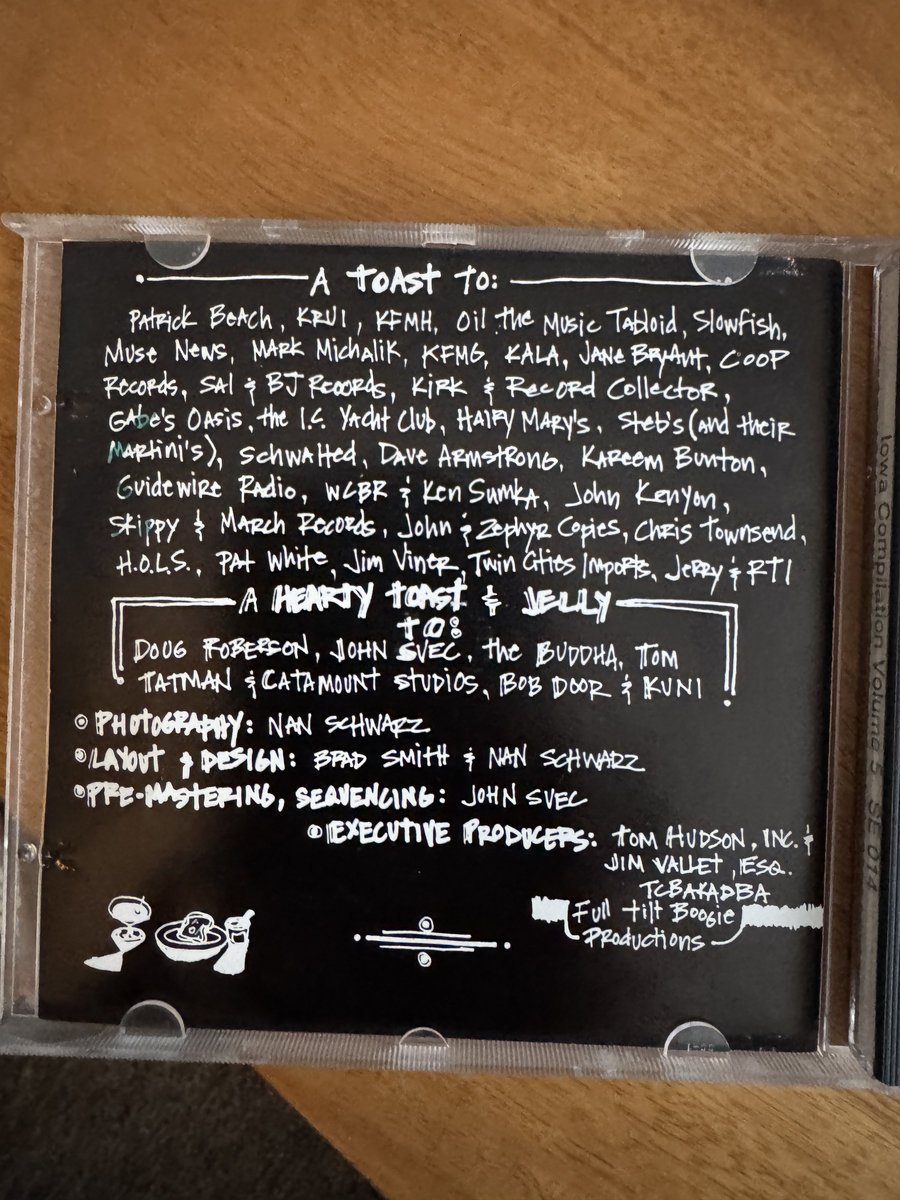 A TOAST TO:
PATRICK BEACH, KRUI, KFMH, Oil the Music Tabloid, Slowfish,
Muse News, MARK MichAliK, KFMG, KALA, JANE BRyAnt, COOP
Records, SAl & BJ Records, KiRK & Record Collector,
GAbe's OASIS, the I.C. YACht Club, HAIRY MARY'S, Steb's (and their
MARtini's), SchwAlted, DAve ARMSTRONG, KAReem Bunton,
Guidewire Radio, WCBR & Ken SumKA, John Kenyon,
SKippy & MARch Records, John & Zephyr Copies, Chris Townsend,
H.O.L.S., PAt White, Jim Viner, Twin Cities Imports, Jerry & RTI
A HEARTY TOAST & JELLY
TO:
DOUG ROBERSON, JOHN SVEC, the BUDDHA, TOM
TATMAN & CATAMOUNT STUDIOS, BOB DOOR & KUNI
PHOTOGRAPHY: NAN SCHWARZ
LAYOUT & DESIGN: BRAD SMITH & NAN SCHWARZ
PRE-MASTERING, SEQUENCING: JOHN SVEC
EXECUTIVE PRODUCERS: TOM HUDSON, INC. &
JIM VALLET, ESQ.
TCBAKADBA
Full tilt Boogie
Productions
Iowa Compilation Volume 5 SE 014